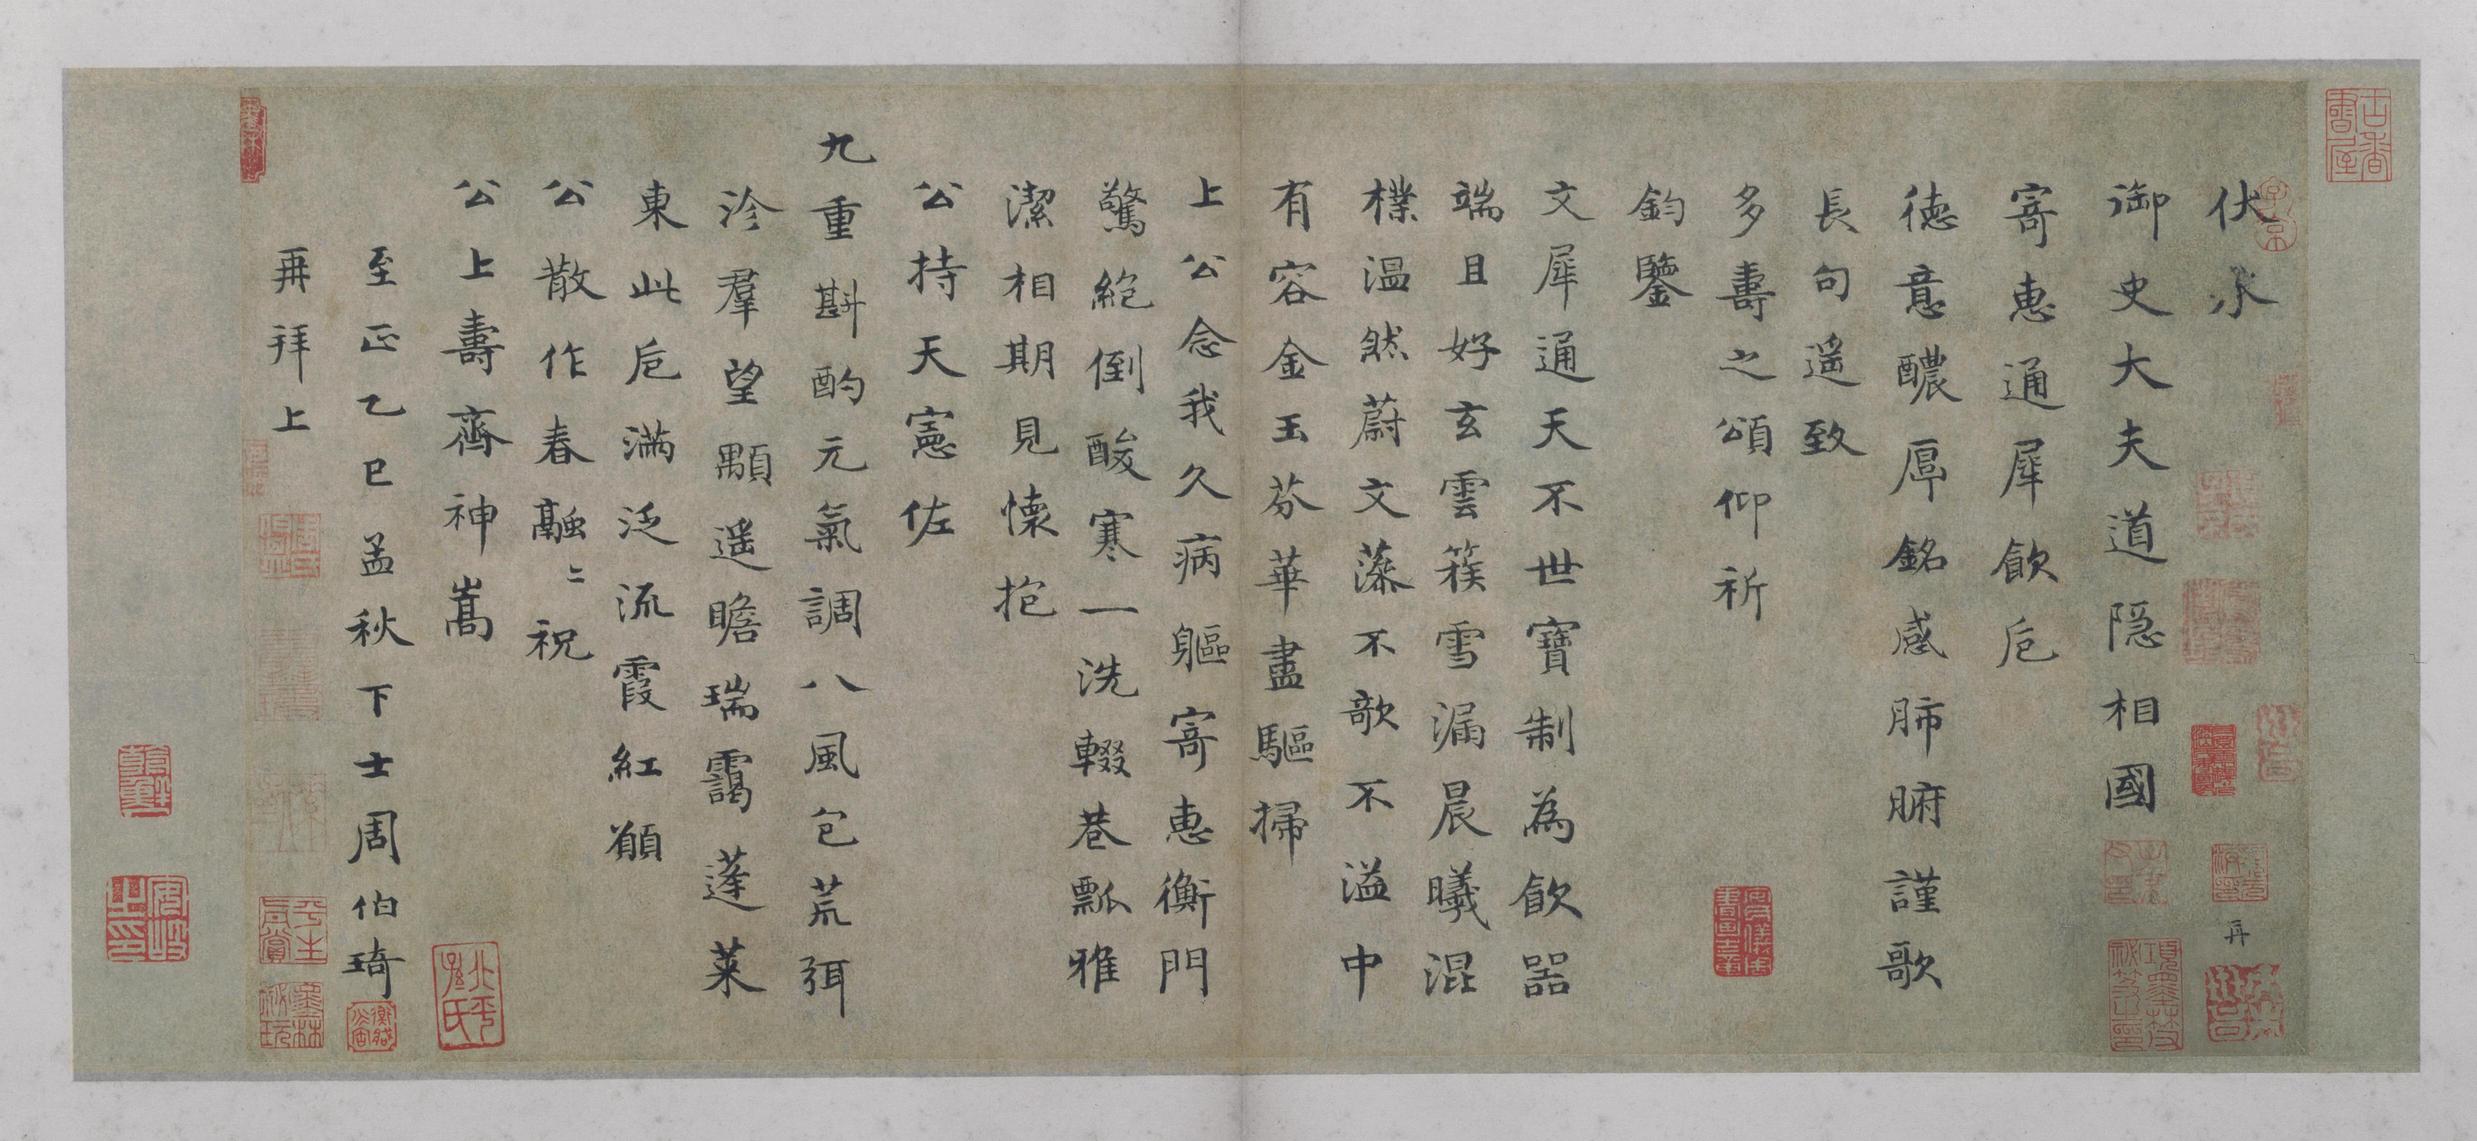 伏承
御史大夫道隐相國
寄惠通犀飲卮
德意醲厚銘感肺腑謹歌
長句遥致
多壽之頌仰祈
鈞鑒
文犀通天不世寶制為飲器
端且好玄雲簇雪漏晨曦混
樸温然蔚文藻不欹不溢中
有容金玉芬華盡驅掃
上公念我久病軀寄惠衡門
驚絶倒酸寒一洗輟巷瓢雅
潔相期見懷抱
公持天憲佐
九重斟酌元氣調八風包荒弭
沴羣望顒遥瞻瑞靄蓬萊
東此卮滿泛流霞紅願
公散作春融二祝
公上壽齊神嵩
至正乙巳孟秋下士周伯琦
再拜上
再
平生真賞
墨林秘玩
北平孫氏
項墨林父秘笈之印